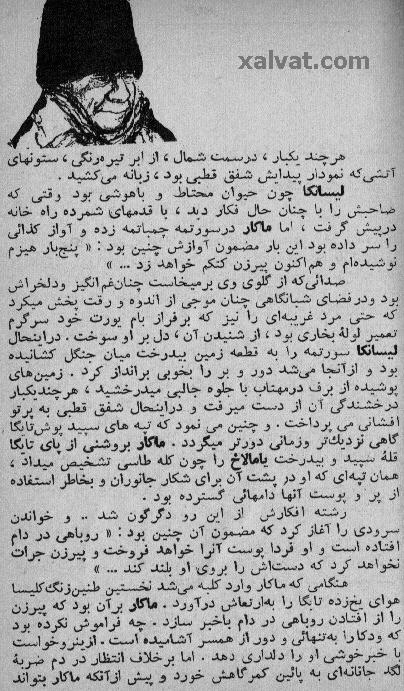 xalvat.com
هرچند یکبار ، درسمت شمال ، از ابر تیره‌رنگی ، ستونهای
آتشی‌که نمودار پیدایش شفق قطبی بود ، زبانه می‌کشید .
لیسانکا چون حیوان محتاط و باهوشی بود وقتی که
صاحبش را با چنان حال فکار دید ، با قدمهای شمرده راه خانه
درپیش گرفت ، اما ماکار درسورتمه چمباتمه زده و آواز کذائی
را سر داده بود این بار مضمون آوازش چنین بود : « پنج‌بار هیزم
نوشیده‌ام و هم‌اکنون پیرزن کتکم خواهد زد ... »
صدائی‌که از گلوی وی برمیخاست چنان‌غم‌انگیز ودلخراش
بود ودرفضای شبانگاهی چنان موجی از اندوه و رقت پخش میکرد
که حتی مرد غریبه‌ای را نیز که برفراز بام یورت خود سرگرم
تعمیر لولهٔ بخاری بود ، از شنیدن آن ، دل بر او سوخت . دراینحال
لیسانکا سورتمه را به قطعه زمین بیدرخت میان جنگل کشانیده
بود و ازآنجا می‌شد دور و بر را بخوبی برانداز کرد . زمین‌های
پوشیده از برف درمهتاب با جلوه جالبی میدرخشید ، هرچندیکبار
درخشندگی آن از دست میرفت و دراینحال شفق قطبی به پرتو
افشانی می پرداخت . و چنین می نمود که تپه های سپید پوش‌تایگا
گاهی نزدیک‌تر وزمانی دورتر میگردد . ماکار بروشنی از پای تایگا
قلهٔ سپید و بیدرخت یامالاخ را چون کله طاسی تشخیص میداد ،
همان تپه‌ای که او در پشت آن برای شکار جانوران و بخاطر استفاده
از پر و پوست آنها دامهائی گسترده بود .
رشته افکارش از این رو دگرگون شد .. و خواندن
سرودی را آغاز کرد که مضمون آن چنین بود : « روباهی در دام
افتاده است و او فردا پوست آنرا خواهد فروخت و پیرزن جرات
نخواهد کرد که دست‌اش را بروی او بلند کند ... »
هنگامی که ماکار وارد کلبه می‌شد نخستین طنین‌زنگ‌کلیسا
هوای یخ‌زده تایگا را به‌ارتعاش درآورد . ماکار برآن بود که پیرزن
را از افتادن روباهی در دام باخبر سازد . چه فراموش نکرده بود
که ودکارا به‌تنهائی و دور از همسر آشامیده است . ازینروخواست
با خبرخوشی او را دلداری دهد . اما برخلاف انتظار در دم ضربهٔ
لگد جانانه‌ای به پائین کمرگاهش خورد و پیش ازآنکه ماکار بتواند